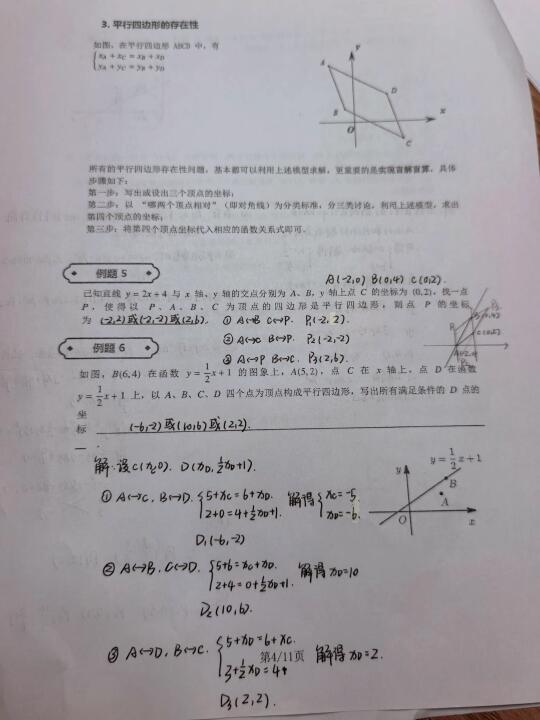 3. 平行四边形的存在性
如图, 在平行四边形 ABCD 中, 有
{xA + xC = xB + xD
yA + yC = yB + yD
y
A
D
B
x
O
C
所有的平行四边形存在性问题, 基本都可以利用上述模型求解, 更重要的是实现盲解盲算, 具体
步骤如下:
第一步: 写出或设出三个顶点的坐标;
第二步: 以 “哪两个顶点相对” (即对角线) 为分类标准, 分三类讨论, 利用上述模型, 求出
第四个顶点的坐标;
第三步: 将第四个顶点坐标代入相应的函数关系式即可.
例题 5
A(-2,0) B(0,4) C(0,2).
已知直线 y = 2x + 4 与 x 轴、y 轴的交点分别为 A、B, y 轴上点 C 的坐标为 (0, 2), 找一点
P, 使得以 P、A、B、C 为顶点的四边形是平行四边形, 则点 P 的坐标
为 (-2,2)或(-2,-2)或(2,6). ① A↔B C↔P. P1(-2,2).
② A↔C B↔P. P2(-2,-2)
③ A↔P B↔C. P3(2,6).
例题 6
如图, B(6,4) 在函数 y = 1/2 x + 1 的图象上, A(5,2), 点 C 在 x 轴上, 点 D 在函数
y = 1/2 x + 1 上, 以 A、B、C、D 四个点为顶点构成平行四边形, 写出所有满足条件的 D 点的
坐
标 (-6,-2)或(10,6)或(2,2).
解: 设C(xc,0). D(xD, 1/2xD+1).
① A↔C, B↔D. {5+xc=6+xD. 2+0=4+1/2xD+1. 解得 {xc=-5 xD=-6.
D1(-6,-2)
y
y = 1/2 x + 1
B
A
O
x
② A↔B, C↔D. {5+6=xc+xD. 2+4=0+1/2xD+1. 解得 xD=10
D2(10,6).
③ A↔D, B↔C. {5+xD=6+xc. 3+1/2xD=4+ 解得 xD=2.
第4/11页
D3(2,2).